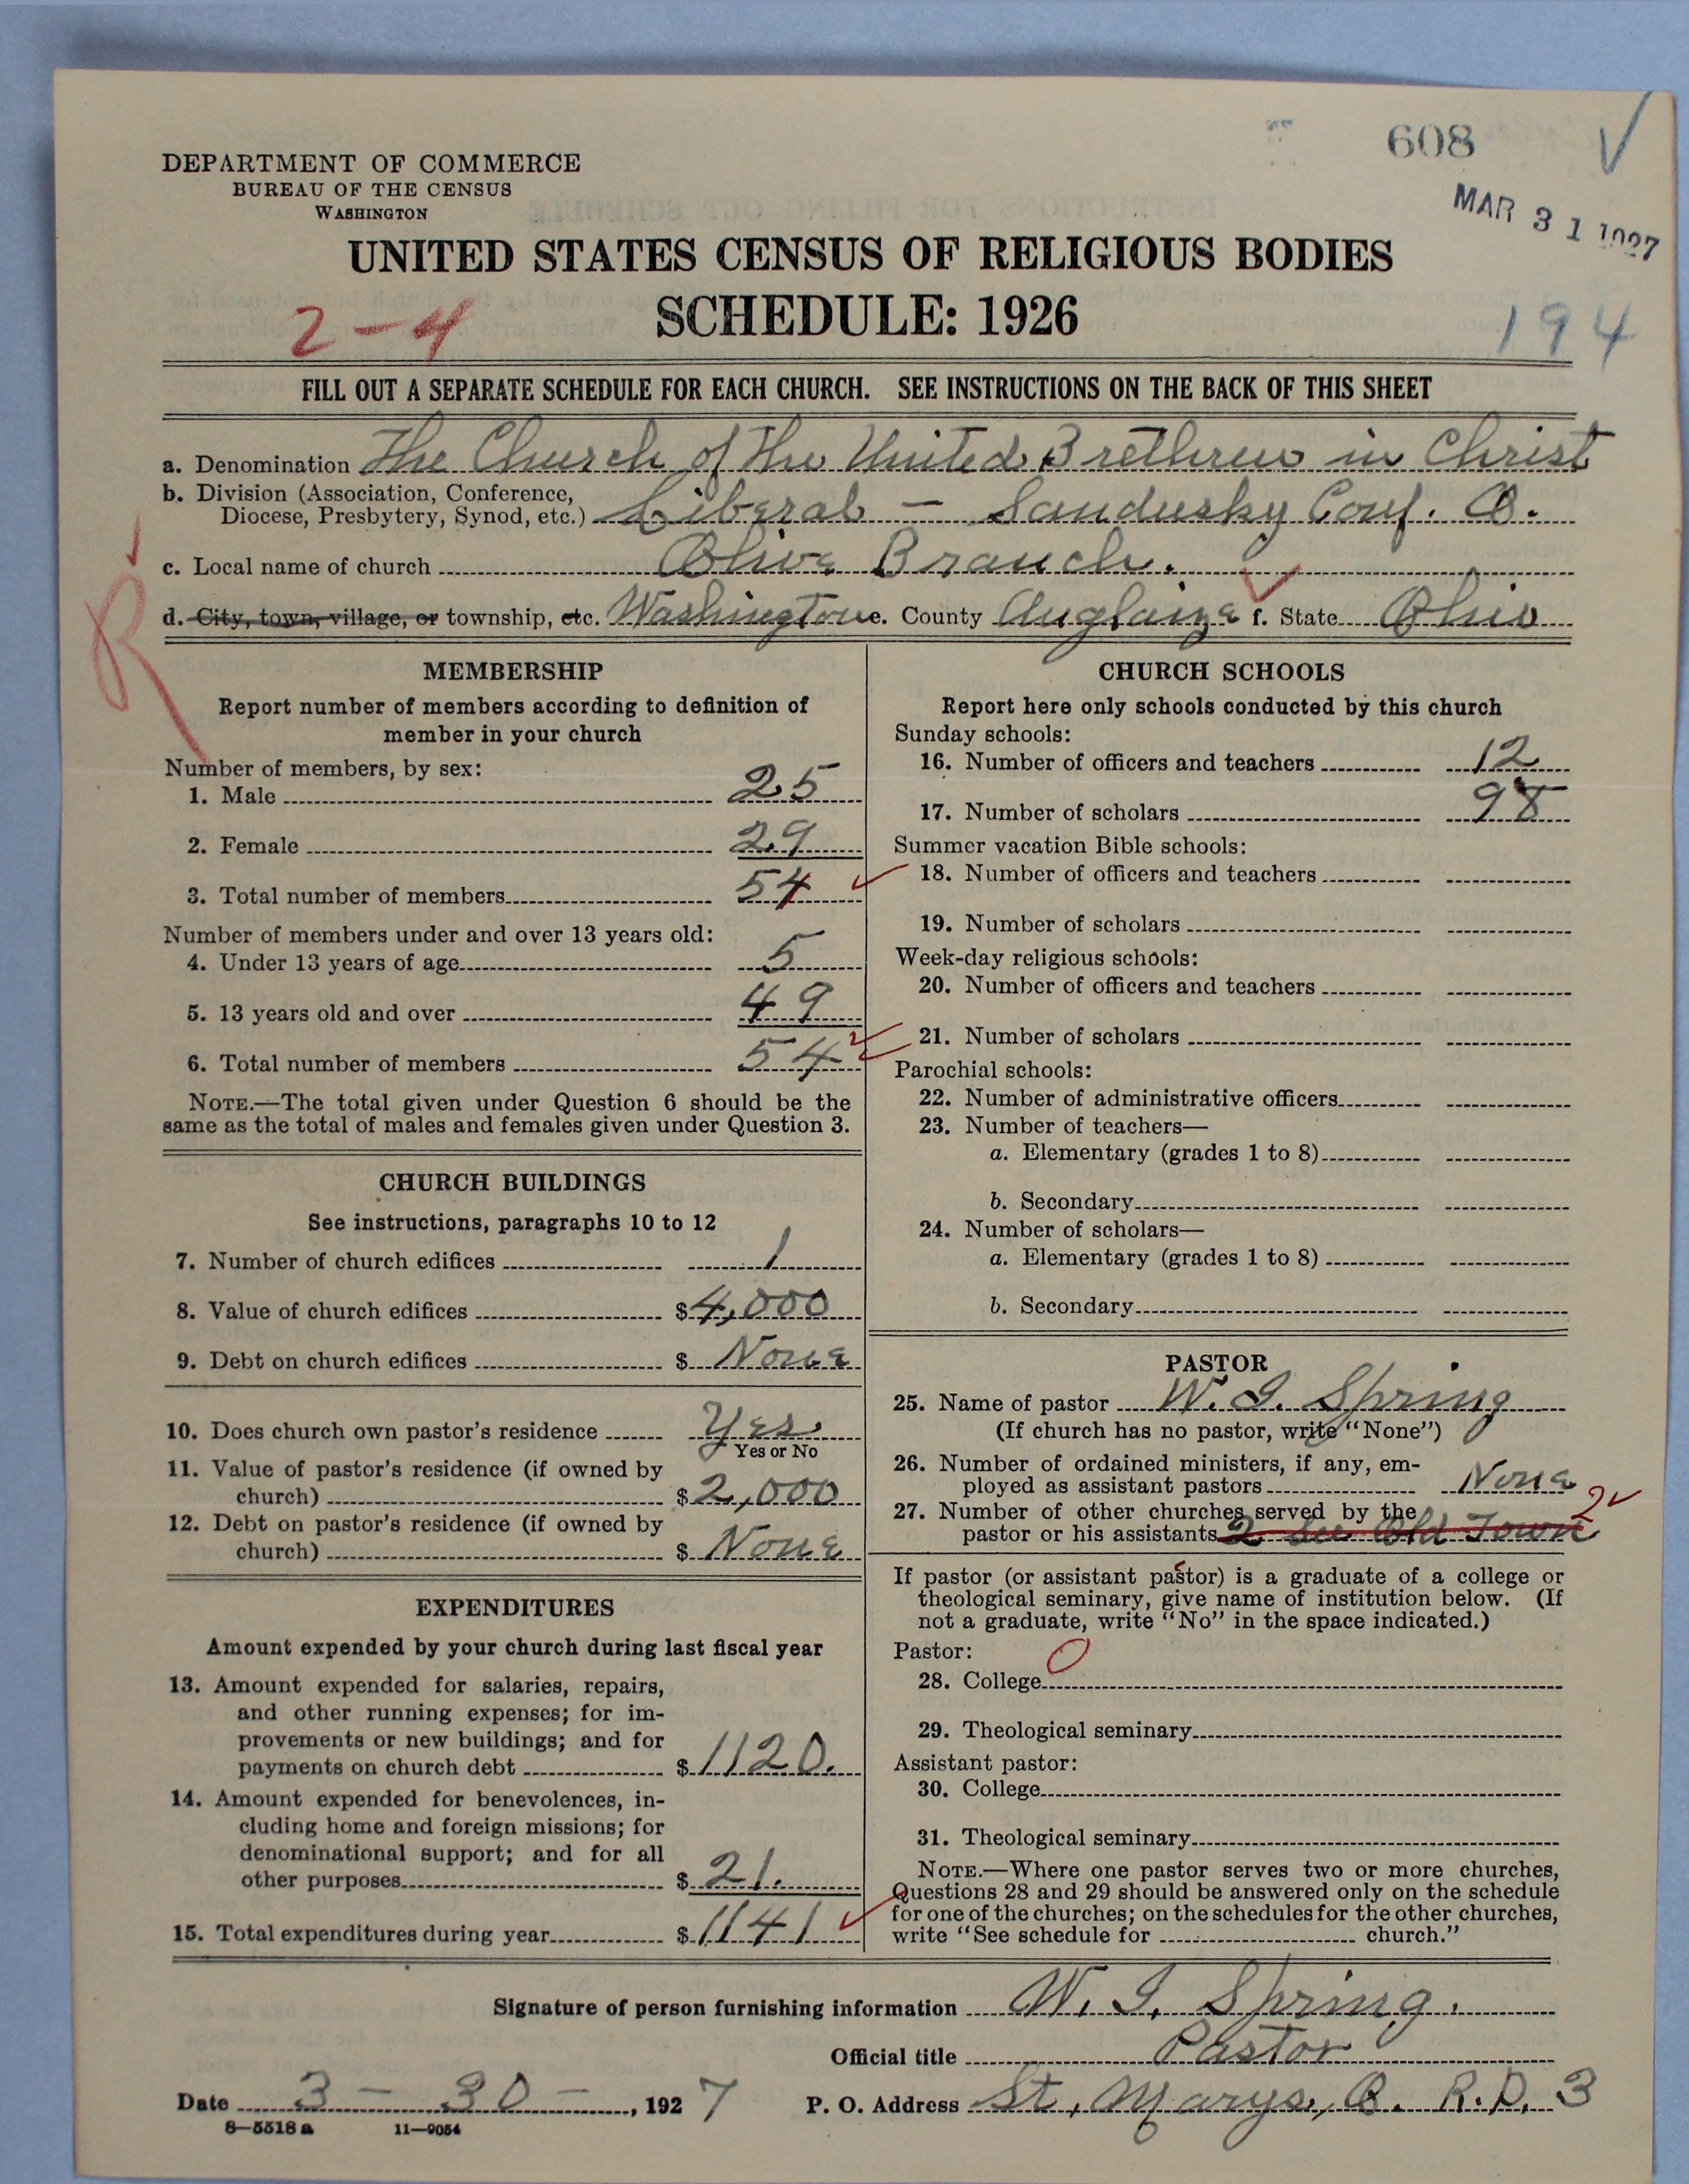 608
MAR 31 1927
DEPARTMENT OF COMMERCE
BUREAU OF THE CENSUS
WASHINGTON
UNITED STATES CENSUS OF RELIGIOUS BODIES
SCHEDULE: 1926
2-4
194
FILL OUT A SEPARATE SCHEDULE FOR EACH CHURCH. SEE INSTRUCTIONS ON THE BACK OF THIS SHEET
a. Denomination The Church of the United Brethren in Christ
b. Division (Association, Conference,
Diocese, Presbytery, Synod, etc.) Liberal - Sandusky Conf. O.
c. Local name of church Olive Branch.
d. City, town, village, or township, etc. Washington e. County Auglaize f. State Ohio
R
MEMBERSHIP
Report number of members according to definition of
member in your church
Number of members, by sex:
1. Male 25
2. Female 29
3. Total number of members 54
Number of members under and over 13 years old:
4. Under 13 years of age 5
5. 13 years old and over 49
6. Total number of members 54
NOTE.—The total given under Question 6 should be the
same as the total of males and females given under Question 3.
CHURCH BUILDINGS
See instructions, paragraphs 10 to 12
7. Number of church edifices 1
8. Value of church edifices $4,000
9. Debt on church edifices $ None
10. Does church own pastor's residence Yes
Yes or No
11. Value of pastor's residence (if owned by
church) $2,000
12. Debt on pastor's residence (if owned by
church) $ None
EXPENDITURES
Amount expended by your church during last fiscal year
13. Amount expended for salaries, repairs,
and other running expenses; for im-
provements or new buildings; and for
payments on church debt $1120.
14. Amount expended for benevolences, in-
cluding home and foreign missions; for
denominational support; and for all
other purposes $ 21.
15. Total expenditures during year $1141
CHURCH SCHOOLS
Report here only schools conducted by this church
Sunday schools:
16. Number of officers and teachers 12
17. Number of scholars 98
Summer vacation Bible schools:
18. Number of officers and teachers
19. Number of scholars
Week-day religious schools:
20. Number of officers and teachers
21. Number of scholars
Parochial schools:
22. Number of administrative officers
23. Number of teachers—
a. Elementary (grades 1 to 8)
b. Secondary
24. Number of scholars—
a. Elementary (grades 1 to 8)
b. Secondary
PASTOR
25. Name of pastor W. I. Spring
(If church has no pastor, write "None")
26. Number of ordained ministers, if any, em-
ployed as assistant pastors None
27. Number of other churches served by the 2
pastor or his assistants 2 See Old Town
If pastor (or assistant pastor) is a graduate of a college or
theological seminary, give name of institution below. (If
not a graduate, write "No" in the space indicated.)
Pastor: 0
28. College
29. Theological seminary
Assistant pastor:
30. College
31. Theological seminary
NOTE.—Where one pastor serves two or more churches,
Questions 28 and 29 should be answered only on the schedule
for one of the churches; on the schedules for the other churches,
write "See schedule for church."
Signature of person furnishing information W. I. Spring.
Official title Pastor
Date 3 - 30 - , 1927 P. O. Address St. Marys, O. R.D. 3
8—5518 a 11—9054